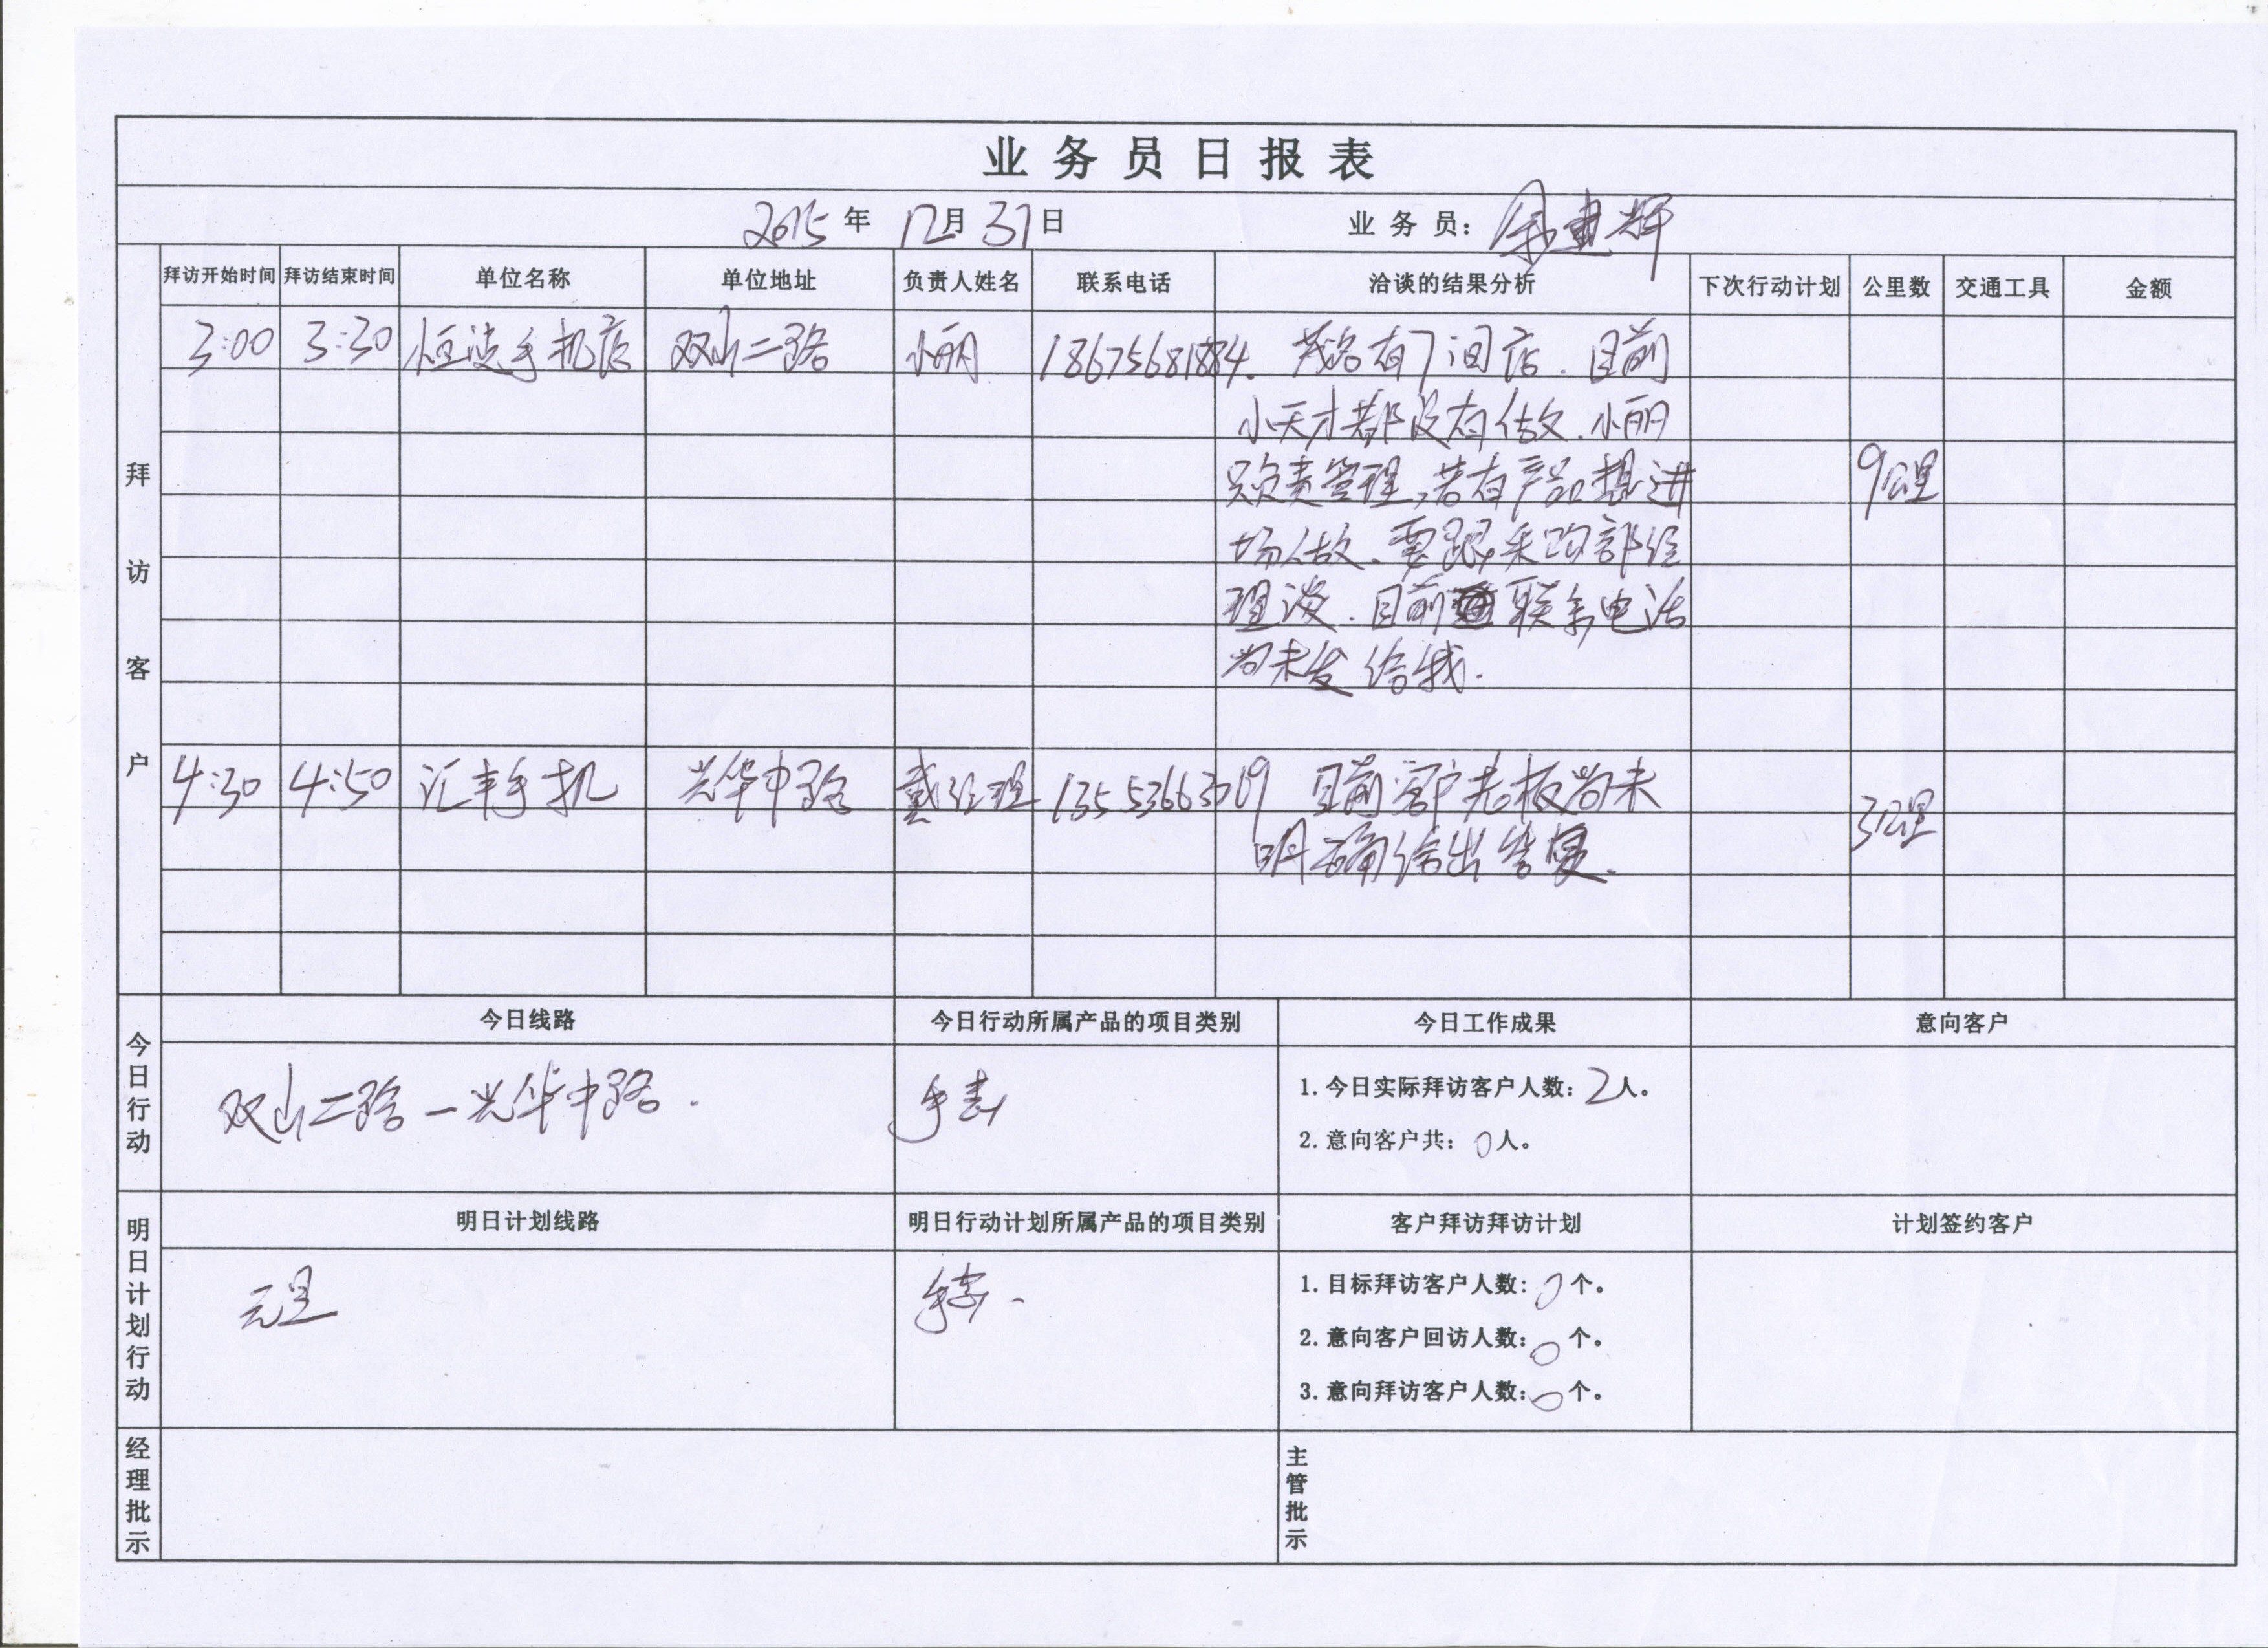 业务员日报表
2015年 12月 31日 业务员：余建辉
拜访客户
拜访开始时间 拜访结束时间 单位名称 单位地址 负责人姓名 联系电话 洽谈的结果分析 下次行动计划 公里数 交通工具 金额
3:00 3:30 恒波手机店 双山二路 小丽 18675681884. 茂名有7间店.目前
小天才都没有做.小丽
只负责管理,若有产品想进 9公里
场做.要跟采购部经
理谈.目前 联系电话
尚未发给我.
4:30 4:50 汇丰手机 光华中路 戴经理 13553663019 目前客户老板尚未 3公里
明确给出答复.
今日行动
今日线路 今日行动所属产品的项目类别 今日工作成果 意向客户
双山二路—光华中路. 手表 1.今日实际拜访客户人数：2人。
2.意向客户共：0人。
明日计划行动
明日计划线路 明日行动计划所属产品的项目类别 客户拜访拜访计划 计划签约客户
元旦 手表. 1.目标拜访客户人数：0个。
2.意向客户回访人数：0个。
3.意向拜访客户人数：0个。
经理批示 主管批示